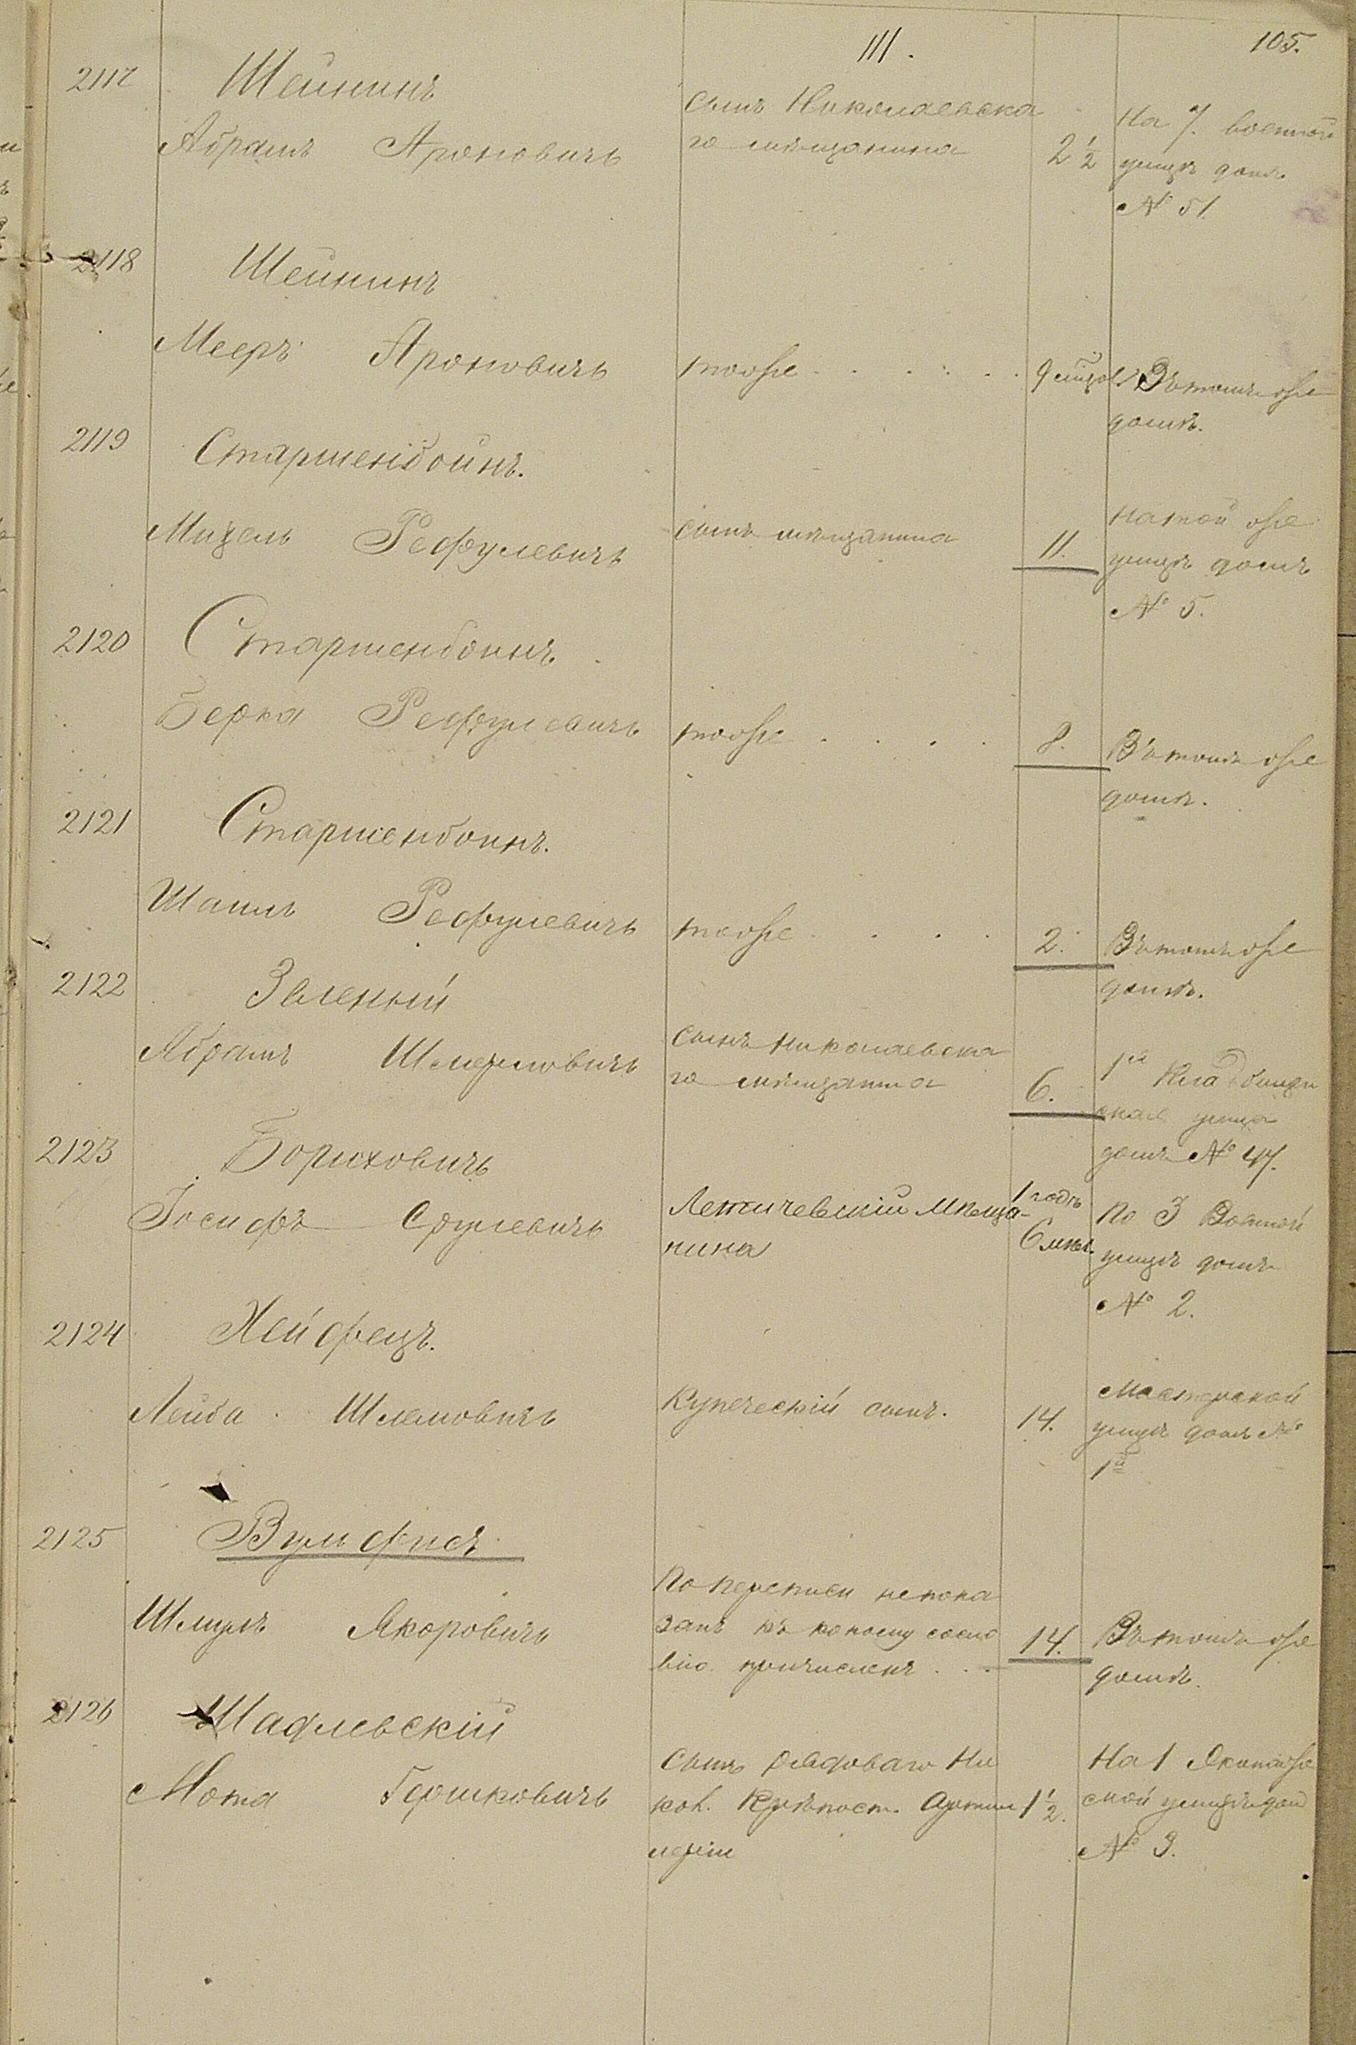 111. 105.
2117 Шейнинъ
Абрамъ Ароновичъ
сынъ Николаевска
го мѣщанина
2½
На 7. военной
улицѣ домъ
№ 51.
2118 Шейнинъ
Мееръ Ароновичъ
тоже . . . . .
Въ томъ же
домѣ.
2119 Старшенбоинъ.
Мицель Рефулевичъ
сынъ мѣщанина
11.
на той же
улицѣ домъ
№ 5.
2120 Старшенбоинъ.
Берка Рефулевичъ
тоже . . . .
8.
Въ томъ же
домѣ.
2121 Старшенбоинъ.
Шаилъ Рефулевичъ
тоже . . . .
2.
Въ томъ же
домѣ.
2122 Зеленый
Абрамъ Шмерловичъ
сынъ Николаевска
го мѣщанина
6.
1ая Кладбищен
ская улица
домъ № 47.
2123 Бориховичъ
Іосифъ Срулевичъ
Летичевскій мѣща-
нина
1 годъ
6 мѣс.
По 3 Военной
улицѣ домъ
№ 2.
2124 Хейфецъ.
Лейба Шлемовичъ
Купеческій сынъ.
14.
Мастерской
улицѣ домъ №
1й
2125 Вульфисъ
Шмулъ Якоровичъ
По переписи непока
занъ къ какому сосло
вію причисленъ . . .
14.
Въ томъ же
домѣ.
2126 Шадлевскій
Мота Гершковичъ
сынъ рядоваго Ни
кол. Крѣпост. Артил
леріи
1½.
На 1 Экипаже
ской улицѣ дом
№ 3.